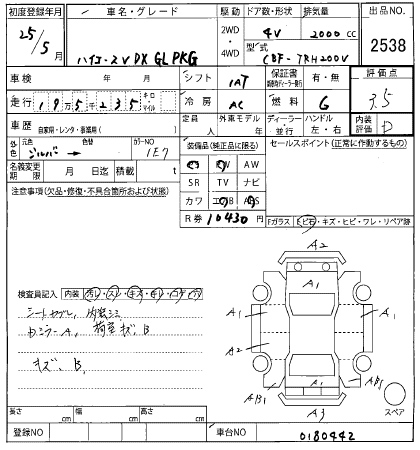 初度登録年月 車名・グレード 駆動 ドア数・形状 排気量 出品NO.
25/5 ハイエースV DX GL PKG 2WD ・ 4WD 4V 2000 cc 2538
型式 CBF-TRH200V
車検 年 月 シフト IAT 保証書 有・無 評価点
走行 19万5千235 キロ マイル 冷房 AC 燃料 G 3.5
車歴 自家用・レンタ・事業用( ) 定員 人 外車モデル 年 ディーラー・並行 ハンドル 左・右 内装評価 D
外色 元色 シルバー → 色替 カラーNO 1E7 装備品(純正品に限る) セールスポイント(正常に作動するもの)
名義変更期限 月 日迄 積載 t PS PW AW
注意事項(欠品・修復・不具合箇所および状態) SR TV ナビ
カワ エアB ABS
R券 10430 円 Fガラス トビ石・キズ・ヒビ・ワレ・リペア跡
検査員記入 内装
シートヨゴレ, 内装シミ
ドアミラーA, 荷室キズ, B
キズ, B,
A2
A1
A1
A1
A2
A1
AB1
A3
スペア
長さ cm 幅 cm 高さ cm
登録NO 車台NO 0180442